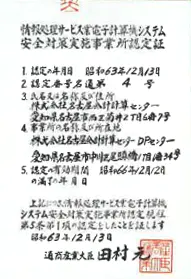 情報処理サービス業電子計算機システム
安全対策実施事業所認定証
1. 認定の年月日 昭和63年12月13日
2. 認定番号名通第 4 号
3. 氏名又は名称及び住所
株式会社名古屋会計計算センター
愛知県名古屋市西区菊井2丁目6番7号
4. 事業所の名称及び所在地
株式会社名古屋会計計算センターDPセンター
愛知県名古屋市中川区尾頭橋1丁目 34号
5. 認定の有効期間 昭和66年12月12日
の満了の年月日
上記について情報処理サービス業電子計算機
システム安全対策実施事業所認定規程
第5条第1項の認定をしたことを証します
昭和63年12月13日
通商産業大臣 田村 元